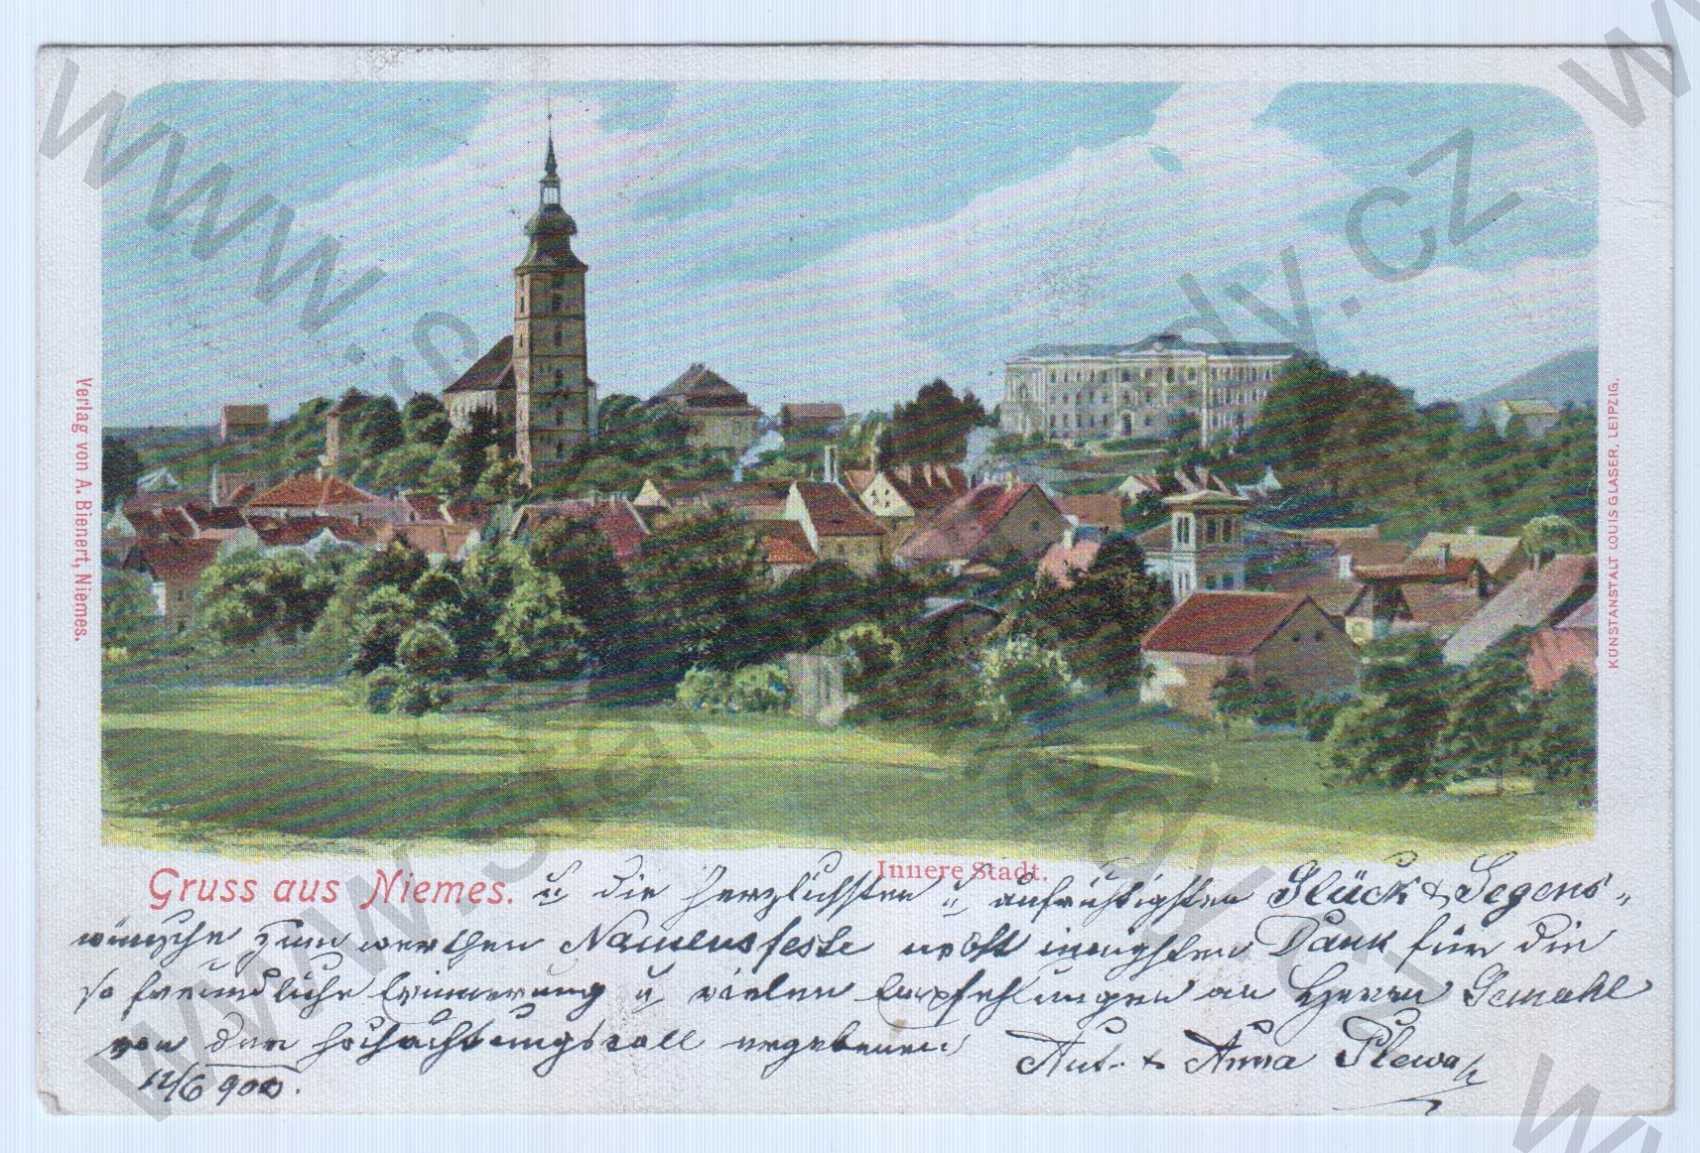 Verlag von A. Bienert, Niemes.
KUNSTANSTALT LOUIS GLASER, LEIPZIG.
Innere Stadt.
Gruss aus Niemes. u. die herzlichsten u. aufrichtigsten Glück & Segens-
wünsche zum werthen Namensfeste nebst innigsten Dank für die
so freundliche Erinnerung u. vielen Empfehlungen an Herrn Gemahl
von den hochachtungsvoll ergebenen Ant. & Anna Plewa
12/6 900.
www.staré.cz